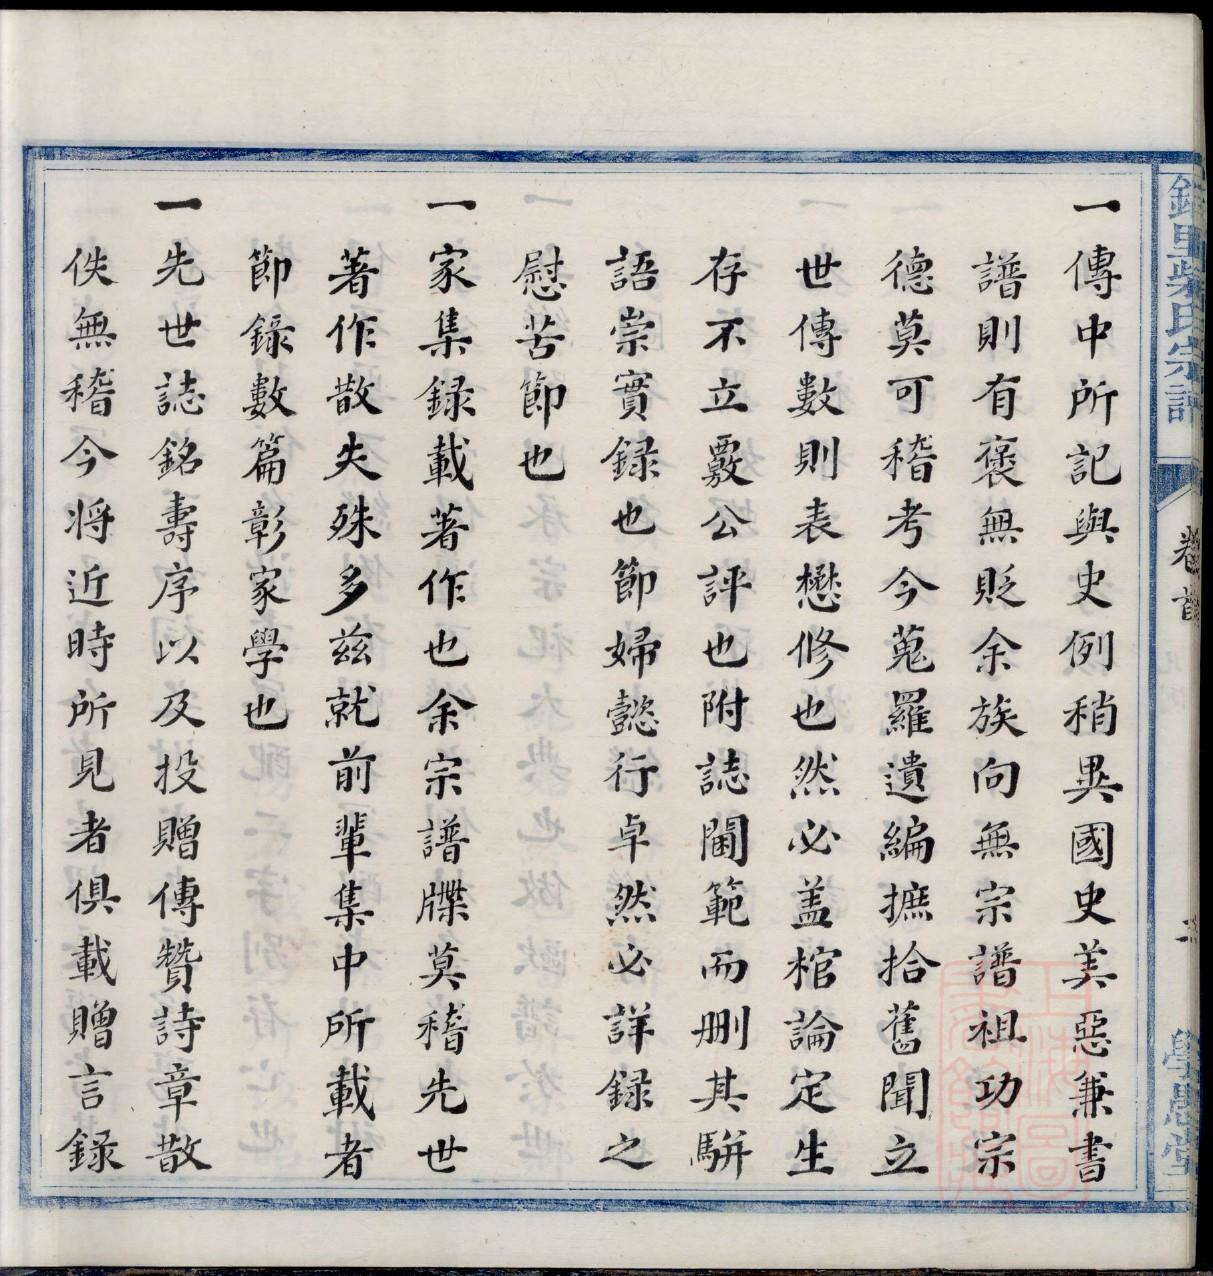 一傳中所記與史例稍異國史美惡兼書
譜則有褒無貶余族向無宗譜祖功宗
德莫可稽考今蒐羅遺編摭拾舊聞立
世傳數則表懋修也然必盖棺論定生
存不立覈公評也附誌閫範而刪其駢
語崇實録也節婦懿行卓然必詳録之
慰苦節也
一家集録載著作也余宗譜牒莫稽先世
著作散失殊多兹就前輩集中所載者
節錄數篇彰家學也
一先世誌銘壽序以及投贈傳贊詩章散
佚無稽今将近時所見者俱載贈言錄
里柴氏宗譜
卷首